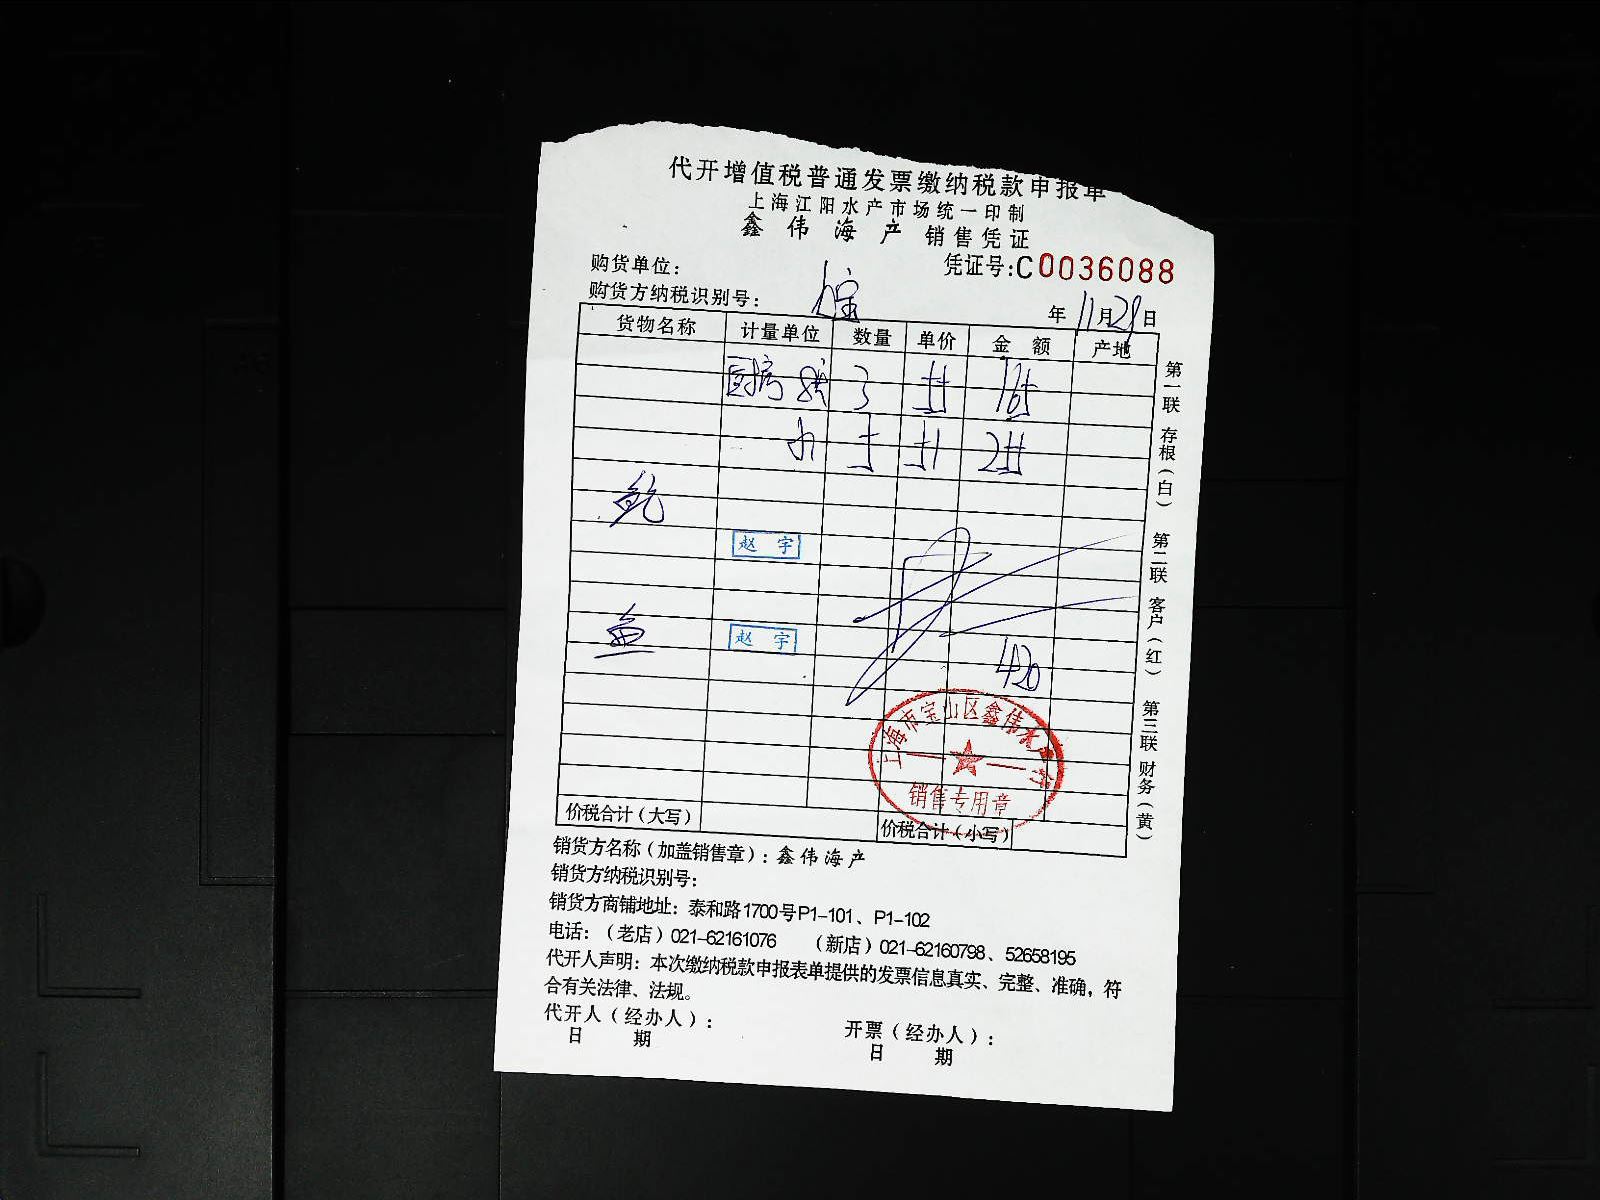 代开增值税普通发票缴纳税款申报单
上海江阳水产市场统一印制
鑫伟海产 销售凭证
购货单位：
凭证号：C0036088
购货方纳税识别号：
年11月29日
货物名称 计量单位 数量 单价 金额 产地
厨房 3
小
赵宇
鱼 赵宇
420
上海市宝山区鑫伟水产行
销售专用章
价税合计（大写） 价税合计（小写）
第一联 存根（白） 第二联 客户（红） 第三联 财务（黄）
销货方名称（加盖销售章）：鑫伟海产
销货方纳税识别号：
销货方商铺地址：泰和路1700号P1-101、P1-102
电话：（老店）021-62161076 （新店）021-62160798、52658195
代开人声明：本次缴纳税款申报表单提供的发票信息真实、完整、准确，符
合有关法律、法规。
代开人（经办人）： 开票（经办人）：
日期 日期